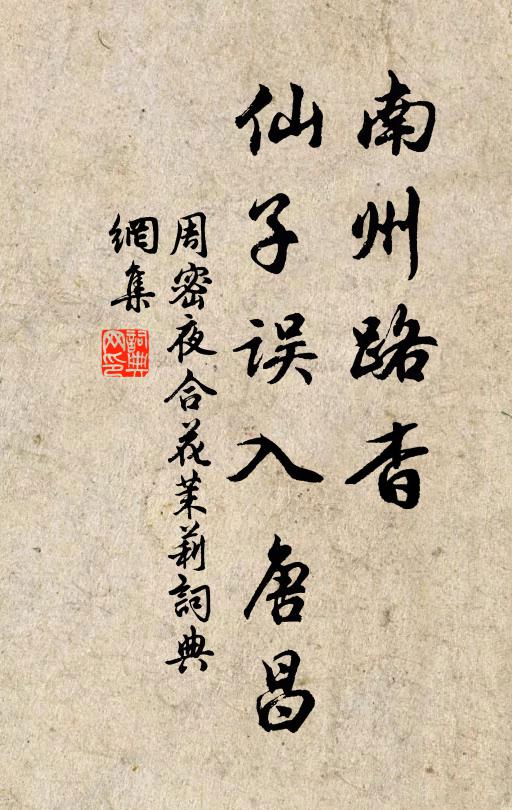 南州路杳
仙子误入唐昌
周密夜合花茉莉詞典
網集
詞典
网印